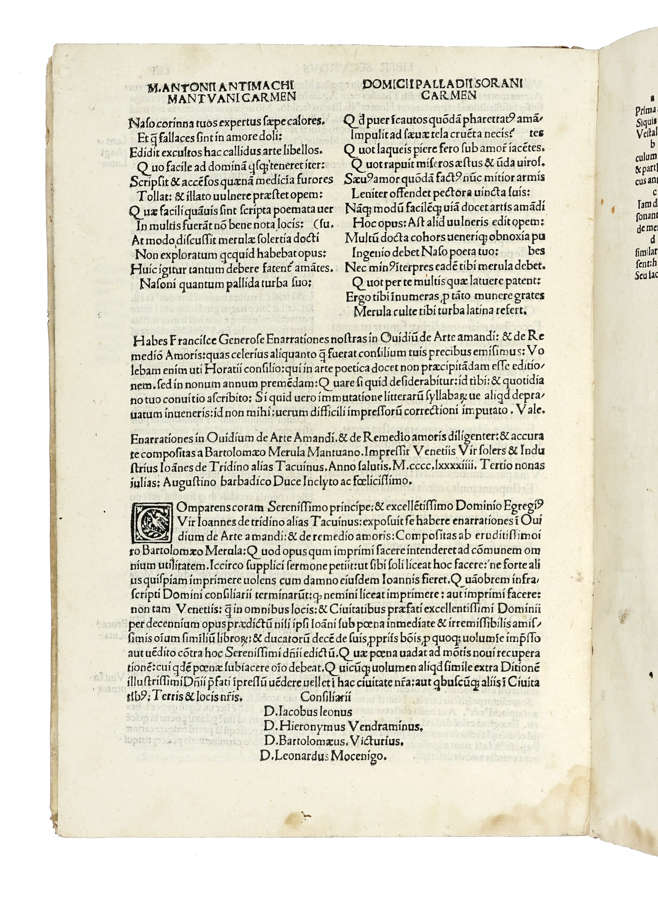 M. ANTONII ANTIMACHI
MANTVANI CARMEN
Naso corinna tuos expertus sæpe calores.
Et q̃ fallaces sint in amore doli:
Edidit excultos hac callidus arte libellos.
Quo facile ad dominã qsq; teneret iter:
Scripsit & accẽsos quænã medicĩa furores
Tollat: & illato uulnere præstet opem:
Quæ facili quãuis sint scripta poemata uer
In multis fuerãt nõ bene nota locis: (su.
At modo discussit merulæ solertia docti
Non exploratum qcquid habebat opus:
Huic igitur tantum debere fatent amãtes.
Nasoni quantum pallida turba suo:
DOMICII PALLADII SORANI
CARMEN
Q d puer icautos quõdã pharetrat9 amã/
Impulit ad sæuæ tela cruẽta necis: tes
Quot laqueis piere fero sub amor iacẽtes.
Quot rapuit miseros æstus & ũda uiros.
Sæu9 amor quõdã fact9 nũc mitior armis
Leniter offendet pectora uincta suis:
Nãq; modũ facilẽq; uiã docet artis amãdi
Hoc opus: Ast alid uulneris edit opem:
Multũ docta cohors uenerisq; obnoxia pu
Ingenio debet Naso poeta tuo: bes
Nec min9 iterpres eadẽ tibi merula debet.
Quot per te multis quæ latuere patent:
Ergo tibi inumeras p tãto munere grates
Merula culte tibi turba latina refert.
Habes Francisce Generose Enarrationes nostras in Ouidiũ de Arte amandi: & de Re
medio Amoris: quas celerius aliquanto q̃ fuerat consilium tuis precibus emisimus: Vo
lebam enim uti Horatii consilio: qui in arte poetica docet non præcipitãdam esse editio/
nem. sed in nonum annum premẽdam: Quare si quid desiderabitur: id tibi: & quotidia
no tuo conuitio ascribito: Si quid uero immutatione litterarũ syllabaꝝue aliqd depra/
uatum inueneris: id non mihi: uerum difficili impressorũ correctioni imputato. Vale.
Enarrationes in Ouidium de Arte Amandi. & de Remedio amoris diligenter: & accura
te compositas a Bartolomæo Merula Mantuano. Impressit Venetiis Vir solers & Indu
strius Ioãnes de Tridino alias Tacuinus. Anno salutis. M.cccc.lxxxxiiii. Tertio nonas
iulias: Augustino barbadico Duce Inclyto ac fœlicissimo.
COmparens coram Serenissimo principe: & excellẽtissimo Dominio Egregi9
Vir Ioannes de tridino alias Tacuinus: exposuit se habere enarrationes ĩ Oui
dium de Arte amandi: & de remedio amoris: Compositas ab eruditissimoi
ro Bartolomæo Merula: Quod opus qum imprimi facere intenderet ad cõmunem om
nium utilitatem. Iccirco supplici sermone petiit: ut sibi soli liceat hoc facere: ne forte ali
us quispiam imprimere uolens cum damno eiusdem Ioannis fieret. Quãobrem infra/
scripti Domini consiliarii terminarũt: q nemini liceat imprimere: aut imprimi facere:
non tam Venetiis: q̃ in omnibus locis: & Ciuitatibus præfati excellentissimi Dominii
per decennium opus prædictũ nisi ipsi Ioãni sub pœna inmediate & irremissibilis amis/
simis oium similiũ libroꝝ: & ducatorũ decẽ de suis ppriis bõis, p quoq; uolumie impsso
aut uẽdito cõtra hoc Serenissimi dñii edictũ. Quæ pœna uadat ad mõtis noui recupera
tionẽ: cui qdẽ pœnæ subiacere oĩo debeat. Quicũq; uolumen aliqd simile extra Ditionẽ
illustrissimi Dñii pfati ĩpressũ uẽdere uellet ĩ hac ciuitate nr̃a: aut qbuscũq; aliis ĩ Ciuita
tib9: Terris & locis nr̃is. Consiliarii
D. Iacobus leonus
D. Hieronymus Vendraminus.
D. Bartolomæus. Victurius.
D. Leonardus Mocenigo.
Prima
Siquis
Vesta
b
culum
& parti
cus an
c
Iam d
sonant
de me
d
similar